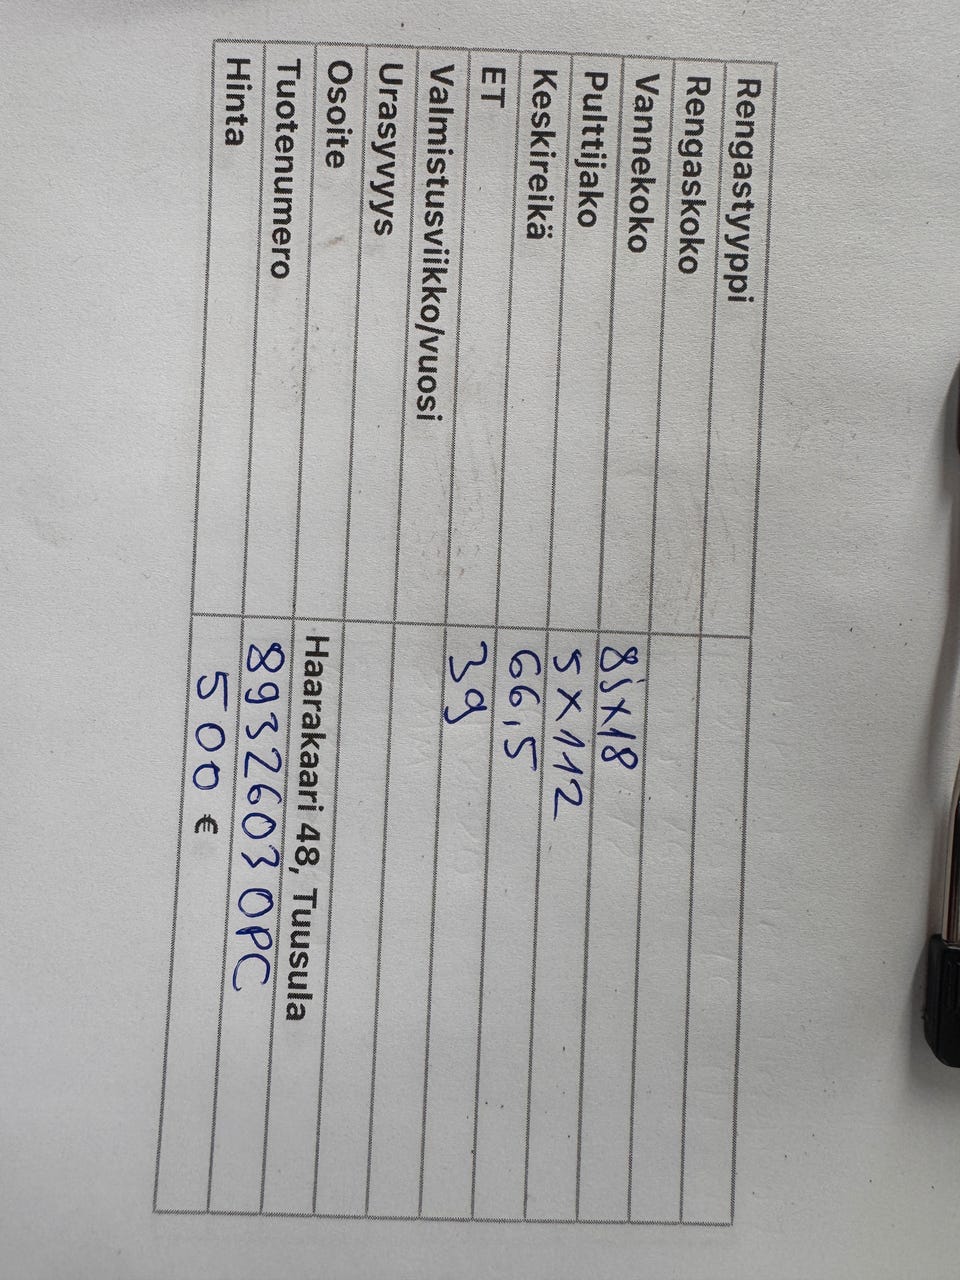 Rengastyyppi
Rengaskoko
Vannekoko 8jx18
Pulttijako 5x112
Keskireikä 66,5
ET 39
Valmistusviikko/vuosi
Urasyvyys
Osoite Haarakaari 48, Tuusula
Tuotenumero 89326030PC
Hinta 500 €